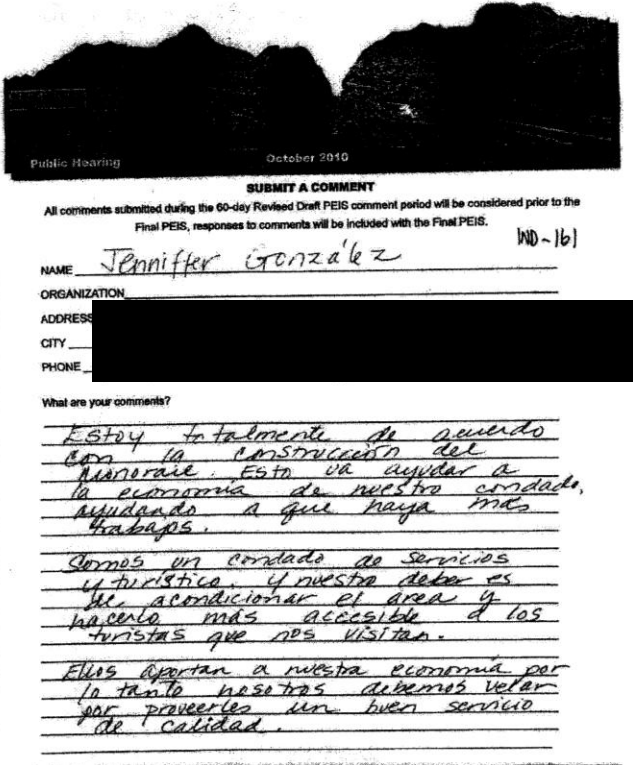 Public Hearing October 2010
SUBMIT A COMMENT
All comments submitted during the 60-day Revised Draft PEIS comment period will be considered prior to the
Final PEIS, responses to comments will be included with the Final PEIS.
IND-161
NAME Jenniffer González
ORGANIZATION
ADDRESS
CITY
PHONE
What are your comments?
Estoy totalmente de acuerdo
con la construcción del
monorail. Esto va ayudar a
la economía de nuestro condado,
ayudando a que haya más
trabajos.
Somos un condado de servicios
y turístico, y nuestro deber es
de acondicionar el area y
hacerlo más accesible a los
turistas que nos visitan.
Ellos aportan a nuestra economía por
lo tanto nosotros debemos velar
por proveerles un buen servicio
de calidad.